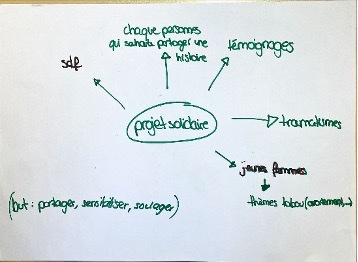 chaque personnes
qui souhaite partager une
histoire
témoignages
sdf
projet solidaire
traumatismes
jeunes femmes
thèmes tabou (avortement...)
(but : partager, sensibiliser, soulager)